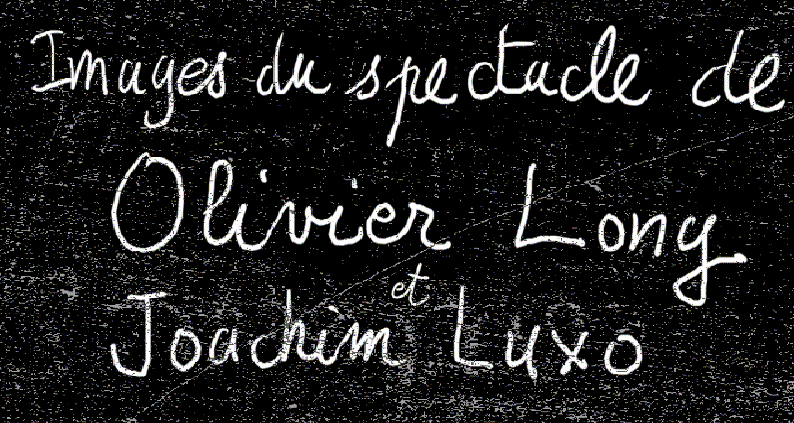 Images du spectacle de
Olivier Long
et
Joachim Luxo